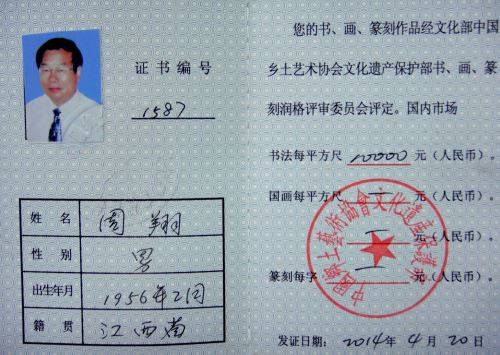 证书编号
1587
姓名 周翔
性别 男
出生年月 1956年2月
籍贯 江西
您的书、画、篆刻作品经文化部中国
乡土艺术协会文化遗产保护部书、画、篆
刻润格评审委员会评定。国内市场
书法每平方尺 10000 元（人民币）。
国画每平方尺 一 元（人民币）。
一 元（人民币）。
篆刻每字 一 元（人民币）。
中國鄉土藝術協會文化遺產保護部
发证日期：2014年4月20日